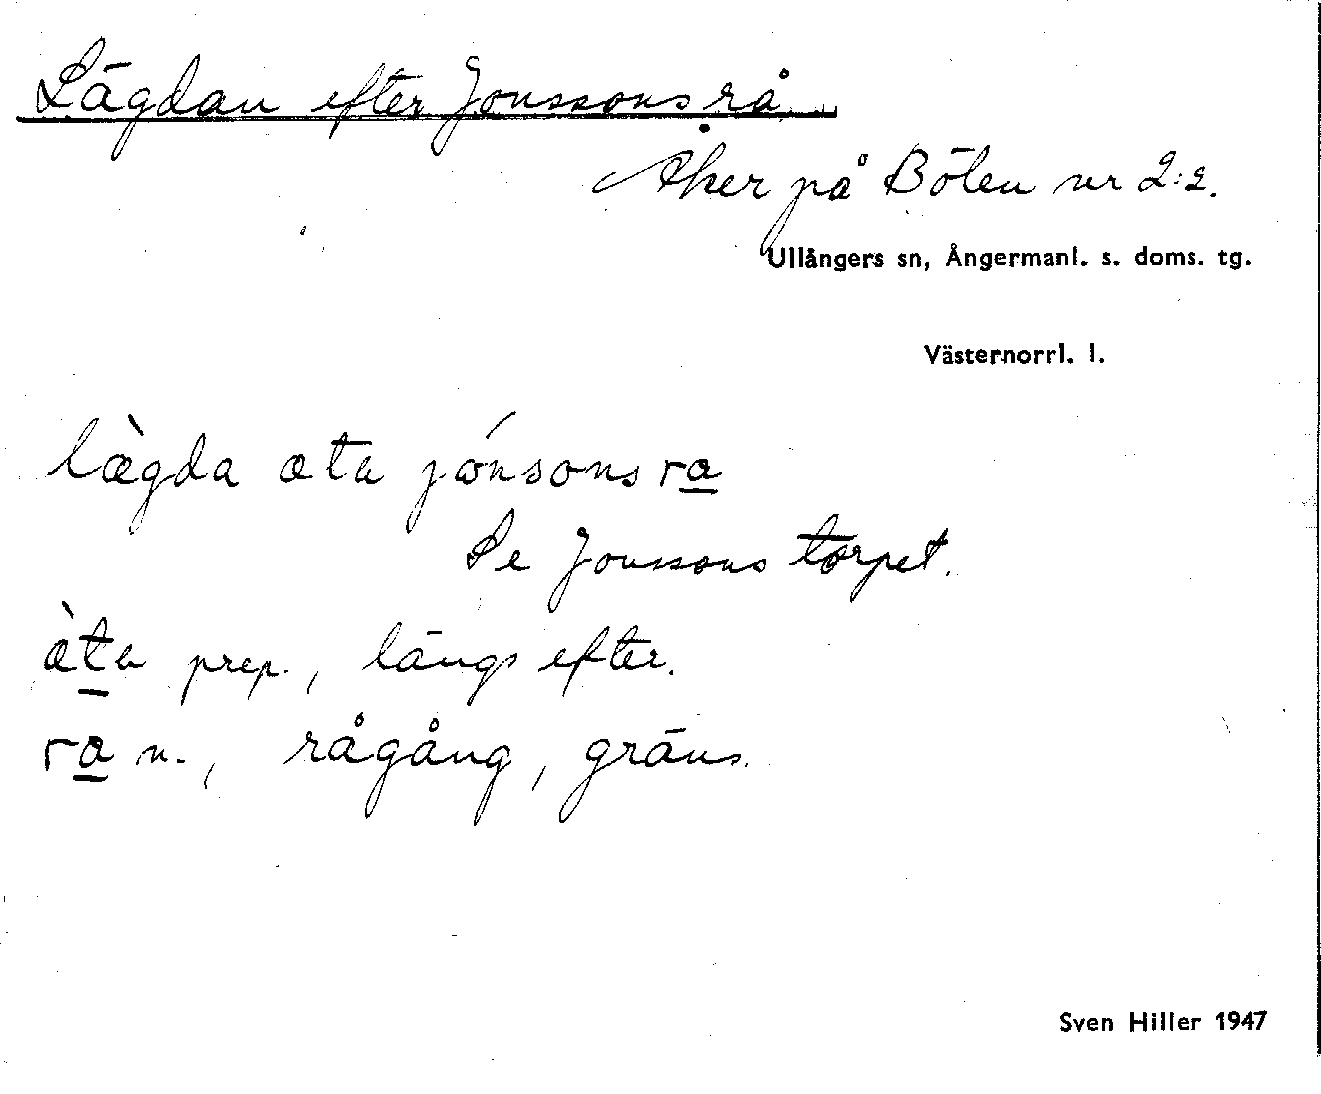 Lägdan efter Jonssons rå
Åker på Bölen nr 2:2.
Ullångers sn, Ångermanl. s. doms. tg.
Västernorrl. l.
læ̀gda æta jónsons ra̲
Se Jonssons torpet.
æ̀t̲a prep., längs efter.
ra̲ n., rågång, gräns.
Sven Hiller 1947